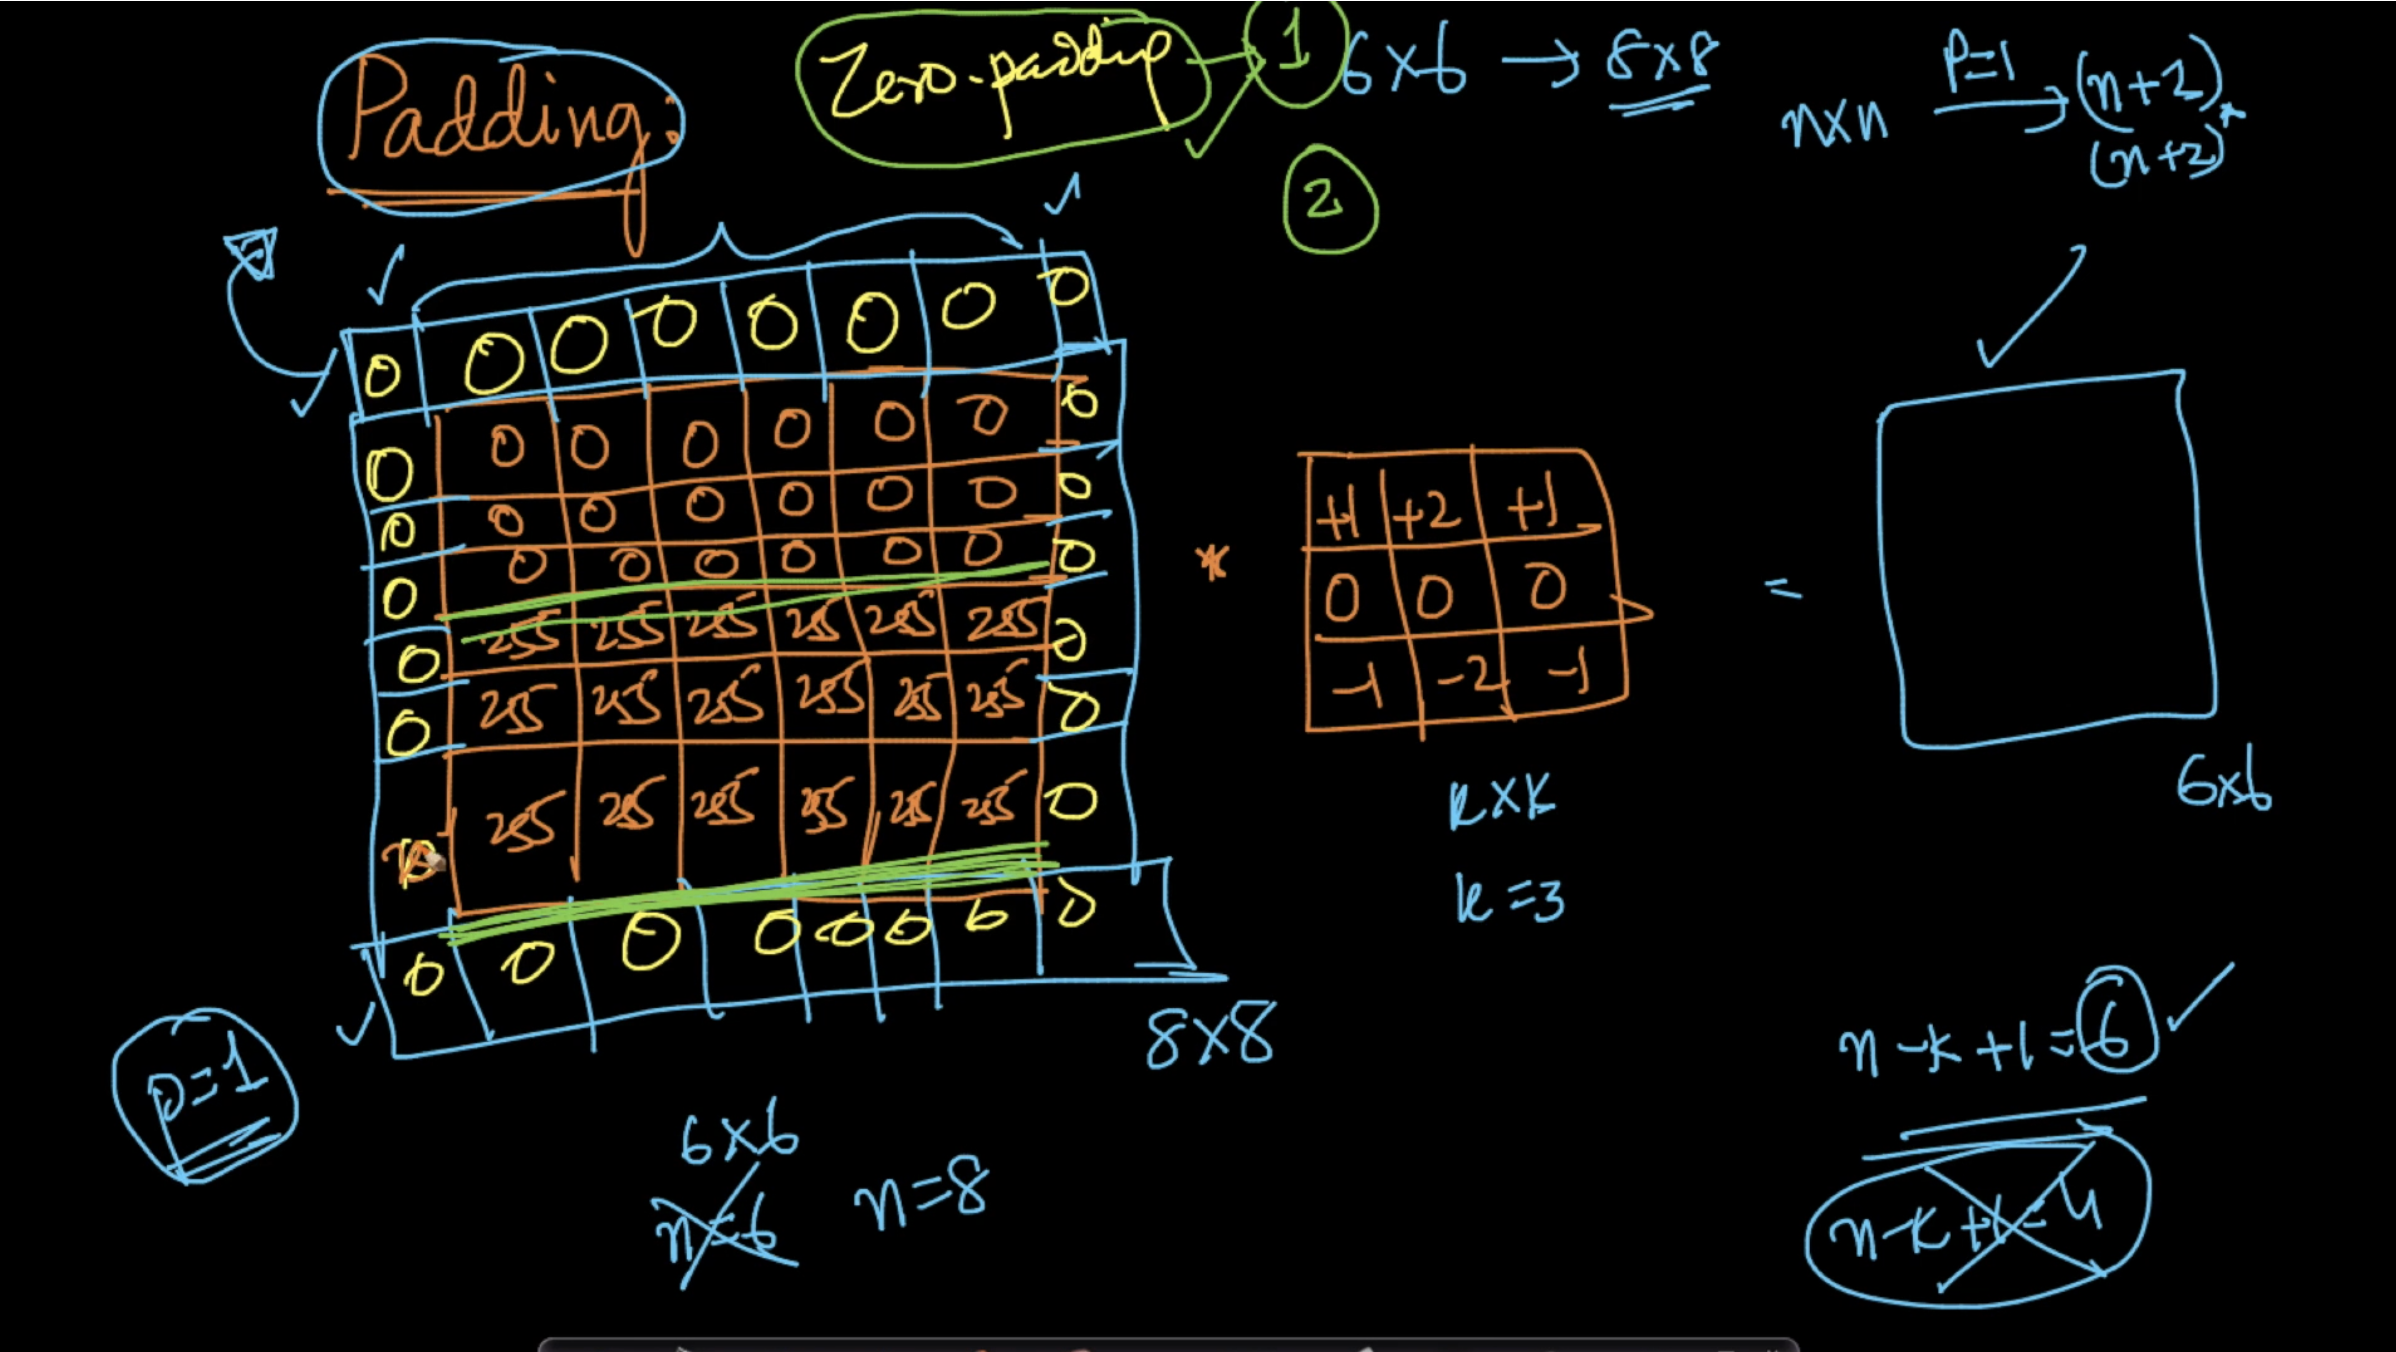 Padding:
Zero-padding
1
6×6 → 8×8
n×n P=1 → (n+2)*
(n+2)
2
0 0 0 0 0 0 0 0
0 0 0 0 0 0 0 0
0 0 0 0 0 0 0 0
0 0 0 0 0 0 0 0
0 255 255 255 255 255 255 0
0 255 255 255 255 255 255 0
255 255 255 255 255 255 0
0 0 0 0 0 0 0 0
8×8
*
+1 +2 +1
0 0 0
-1 -2 -1
k×k
k=3
=
6×6
p=1
6×6
n=6 n=8
n-k+1=6
n-k+1=4